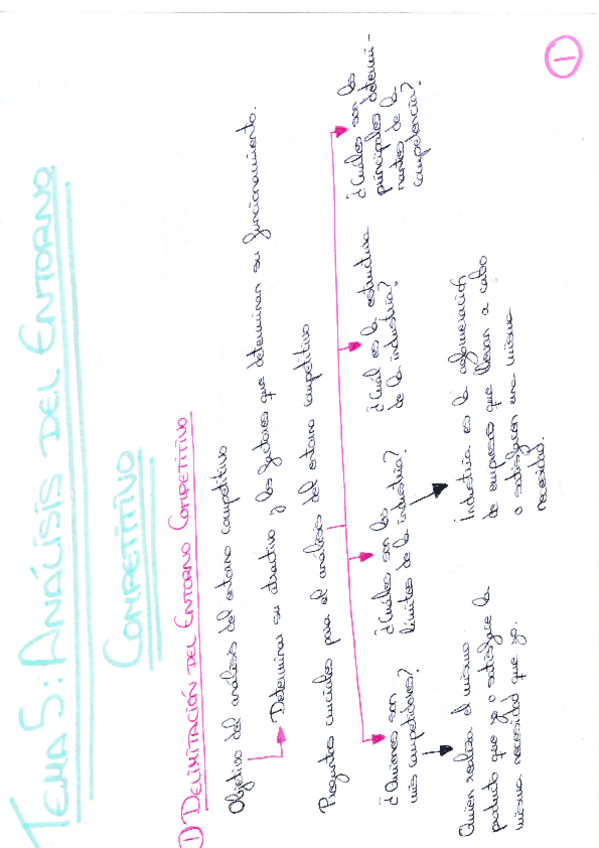 1
TEMA 5: ANÁLISIS DEL ENTORNO
COMPETITIVO
1 DELIMITACIÓN DEL ENTORNO COMPETITIVO
Objetivo del análisis del entorno competitivo
Determinar su atractivo y los factores que determinan su funcionamiento.
Preguntas cruciales para el análisis del entorno competitivo
¿Quiénes son
mis competidores?
¿Cuáles son los
límites de la industria?
¿Cuál es la estructura
de la industria?
¿Cuáles son los
principales determi-
nantes de la
competencia?
Quién realiza el mismo
producto que yo o satisface la
misma necesidad que yo.
Industria es la aglomeración
de empresas que llevan a cabo
o satisfacen una misma
necesidad.